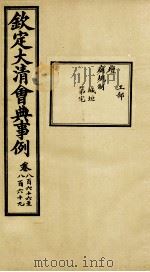 工部
壇廟規制
城垣
第宅
欽定大清會典事例
卷八百六十六至
八百六十九